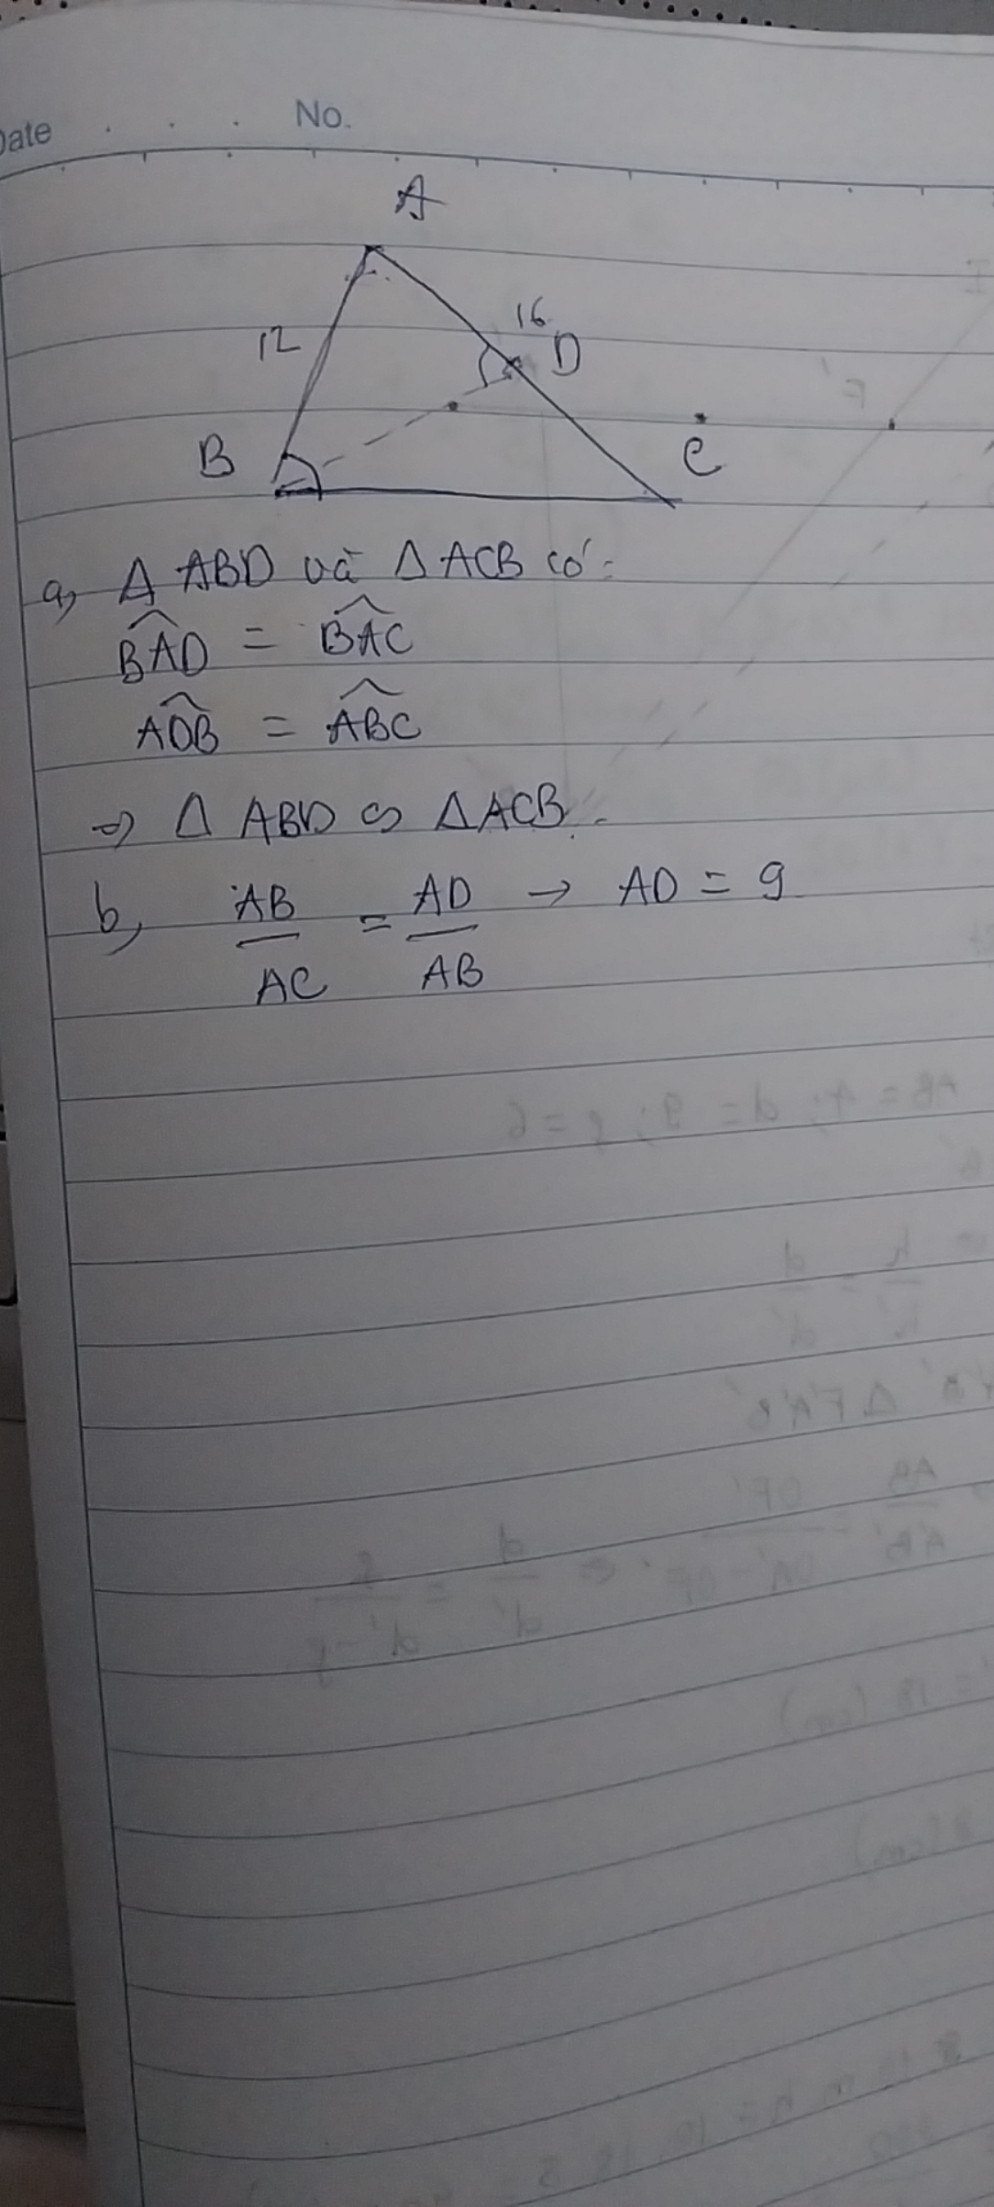 Date No.
A
12
16
D
B
C
a, Δ ABD và Δ ACB có:
BAD = BAC
ADB = ABC
=> Δ ABD ∽ Δ ACB.
b, AB/AC = AD/AB → AD = 9